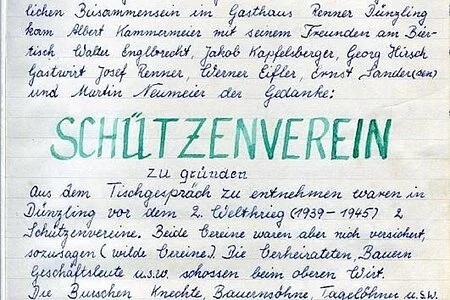 lichen Zusammensein im Gasthaus Renner Dünzling
kam Albert Kammermeier mit seinem Freunden am Bier-
tisch Walter Englbrecht, Jakob Kapfelsberger, Georg Hirsch
Gastwirt Josef Renner, Werner Eifler, Ernst Sander(sen)
und Martin Neumeier der Gedanke:
SCHÜTZENVEREIN
zu gründen
Aus dem Tischgespräch zu entnehmen waren in
Dünzling vor dem 2. Weltkrieg (1939-1945) 2
Schützenvereine. Beide Vereine waren aber nich versichert,
sozusagen (wilde Vereine). Die Verheirateten, Bauern
Geschäftsleute u.s.w. schossen beim oberen Wirt.
Die Burschen Knechte, Bauernsöhne, Tagelöhner u.s.w.